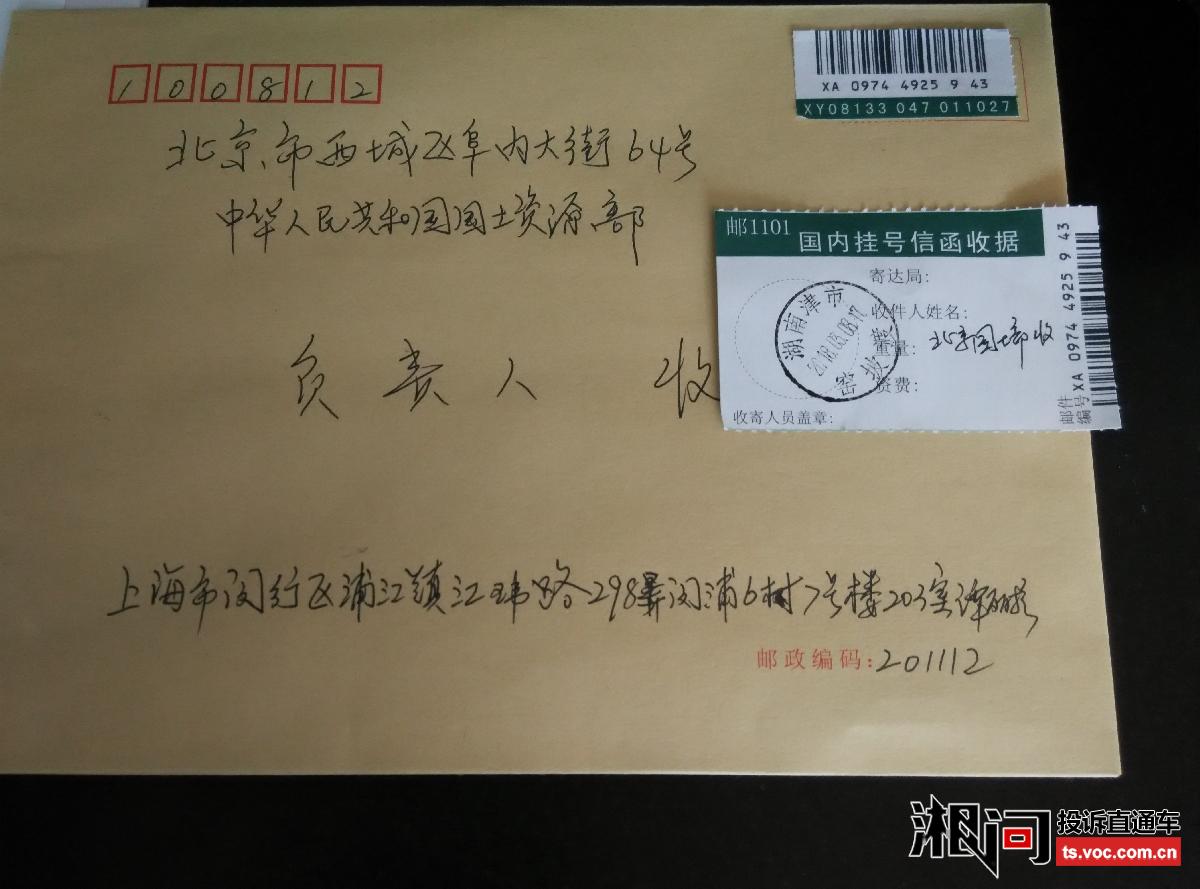 100812
XA 0974 4925 9 43
XY08133 047 011027
北京市西城区阜内大街64号
中华人民共和国国土资源部
邮1101 国内挂号信函收据
寄达局:
收件人姓名:
北京国土部收
重量:
资费:
收寄人员盖章:
湖南津市
窑坡渡
邮件编号 XA 0974 4925 9 43
负责人 收
上海市闵行区浦江镇江玮路298弄闵浦6村7号楼203室谭
邮政编码:201112
湘问
投诉直通车
ts.voc.com.cn